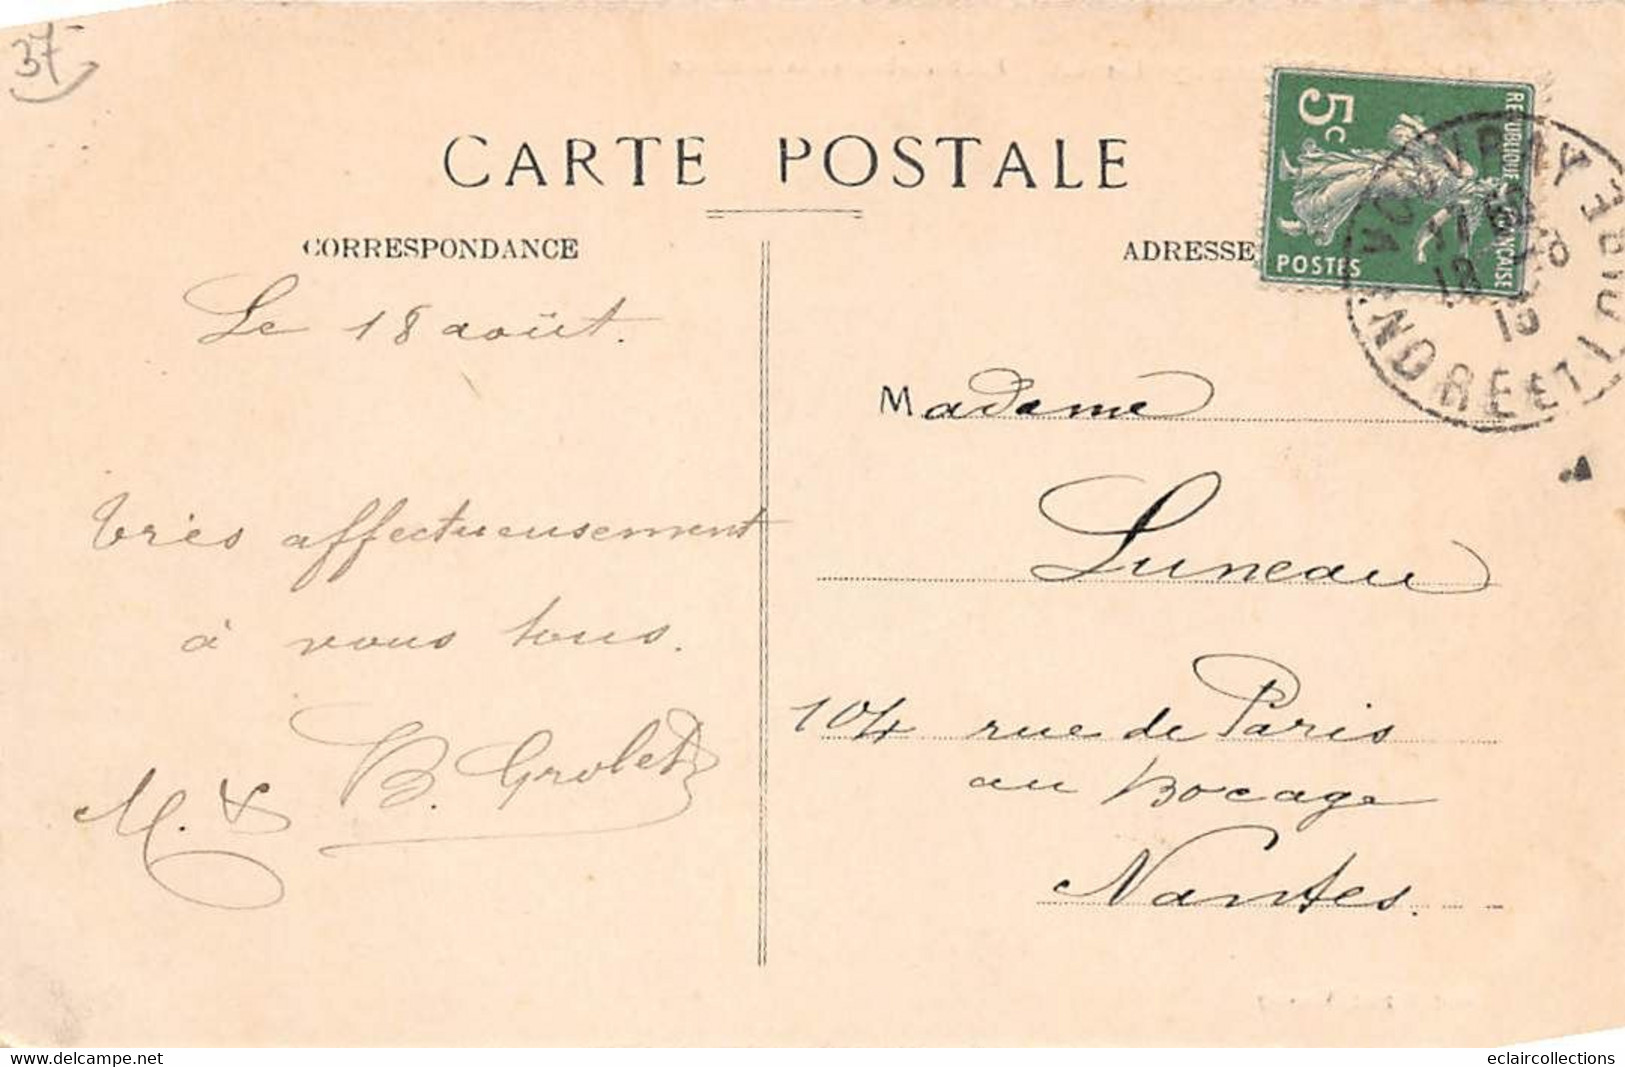 37
CARTE POSTALE
CORRESPONDANCE
ADRESSE
5c
REPUBLIQUE FRANÇAISE
POSTES
VOUVRAY
INDRE ET LOIRE
18
Le 18 août.
Très affectueusement
à vous tous.
M. & B. Grolet
Madame
Luneau
104 rue de Paris
au Bocage
Nantes.
eclaircollections